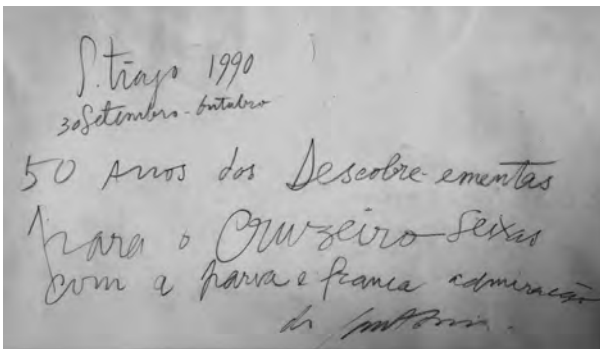 S. tiago 1990
30 Setembro - Outubro
50 Anos dos Descobre-ementas
para o Cruzeiro Seixas
com a parva e franca admiração
do